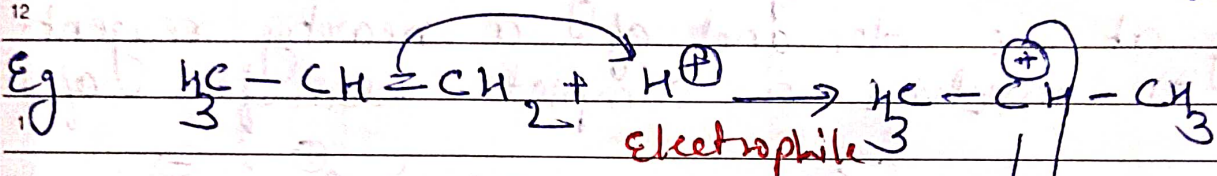 12
Eg H₃C – CH = CH₂ + H⊕ ⟶ H₃C – C⊕H – CH₃
1 Electrophile